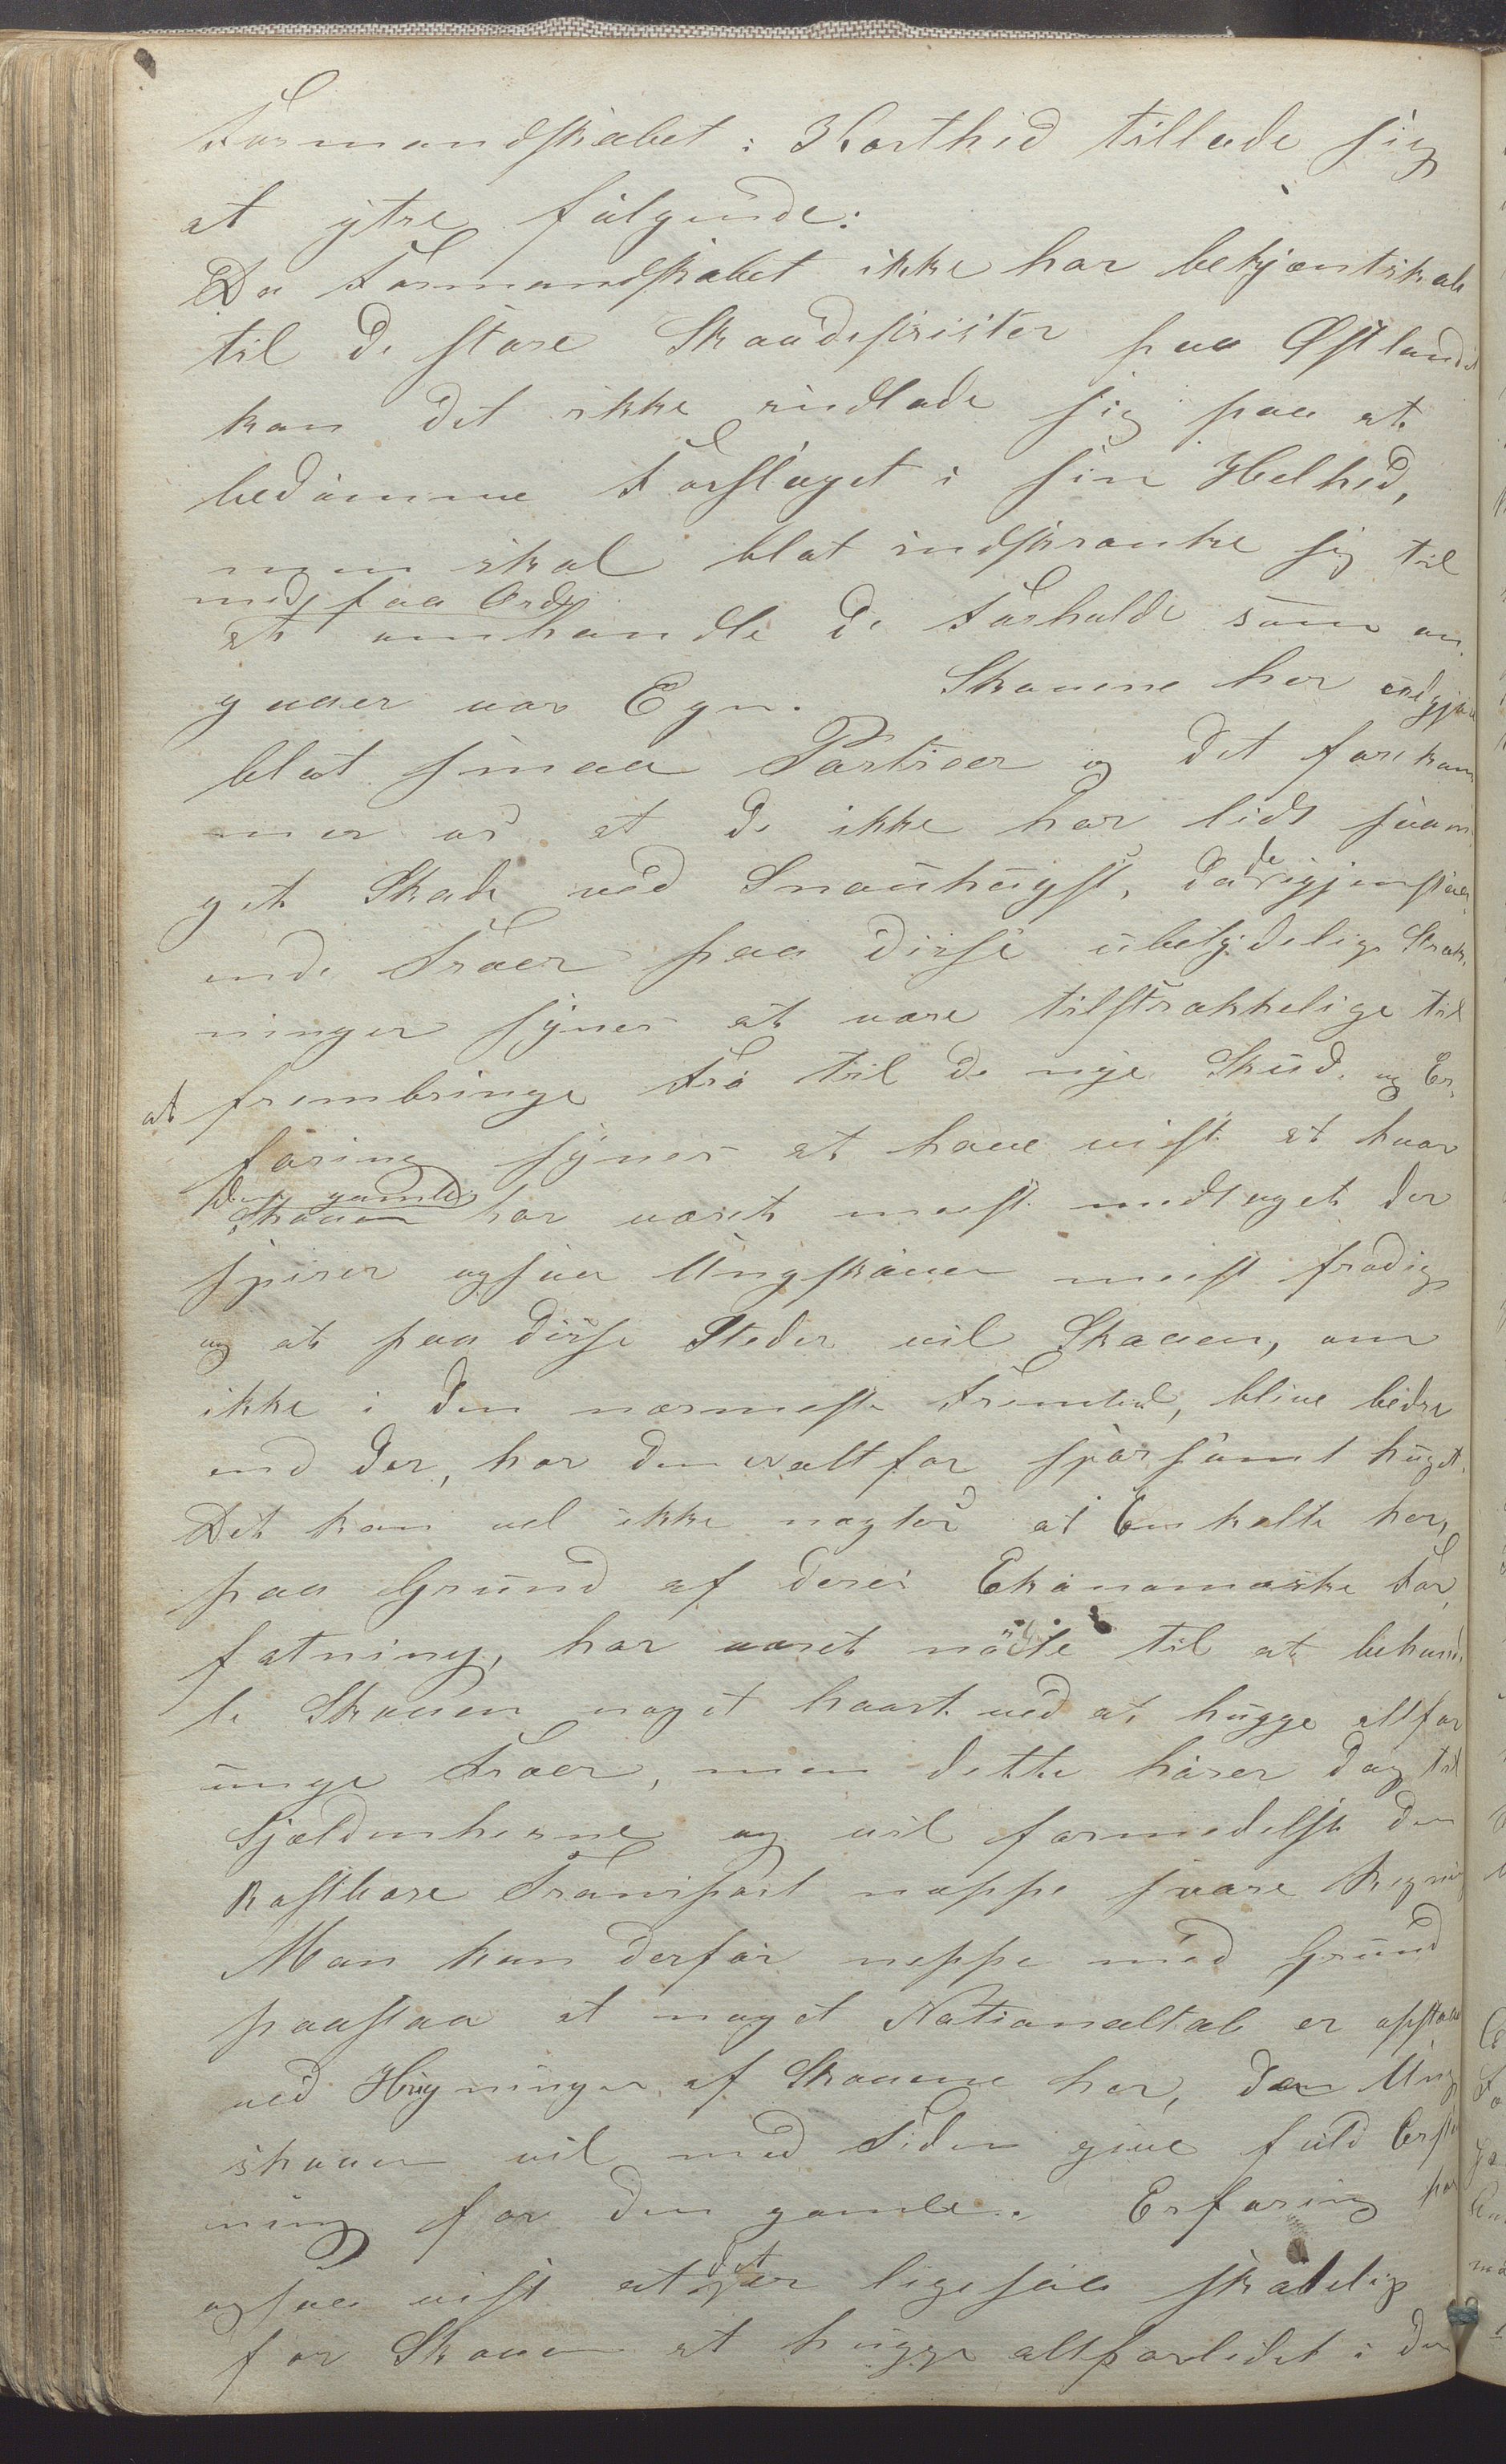 Formandskabet: Korthed tillade sig
at ytre følgende:
Da Formandskabet ikke har bekjentskab
til de store Skovdistrikter paa Østlandet
kan det ikke indlade sig paa at
bedømme Forslaget i sin Helhed,
men skal blot indskrænke sig til
med faa Ord
at omhandle de Forholde som an
gaaer vor Egn. Skovene her udgjør
blot smaa Partier og det forekom
mer os at de ikke har lidt saa me
get Skade ved Snauhugst, da de igjenstaa
ende Træer paa disse ubetydelige Stræk
ninger synes at være tilstrækkelige til
at frembringe Frø til de nye Skud. og Er
faring synes at have vist at hvor
den gamle
Skoven har været meest medtaget der
spirer ogsaa Ungskoven meest frodig
og at paa disse Steder vil Skoven, om
ikke i den nærmeste Fremtid, blive bedre
end der, hvor den er altfor sparsomt huget.
Det kan vel ikke nægtes at Enkelte her,
paa Grund af deres Økonomiske For
fatning, har været nødte til at behand
le Skoven noget haardt ved at hugge altfor
unge Træer, men dette hører dog til
Sjeldenherne og vil formedelst den
kostbare Transport neppe svare Regning
Man kan derfor neppe med Grund
paastaa at noget Nationaltab er opstaaet
ved Hugninger af Skovene her, den Ung
skoven vil med Tiden give fuld Erstat
ning for den gamle. Erfaring har
ogsaa vist at det er ligesaa skadelig
for Skoven at hugge altforlidet i den